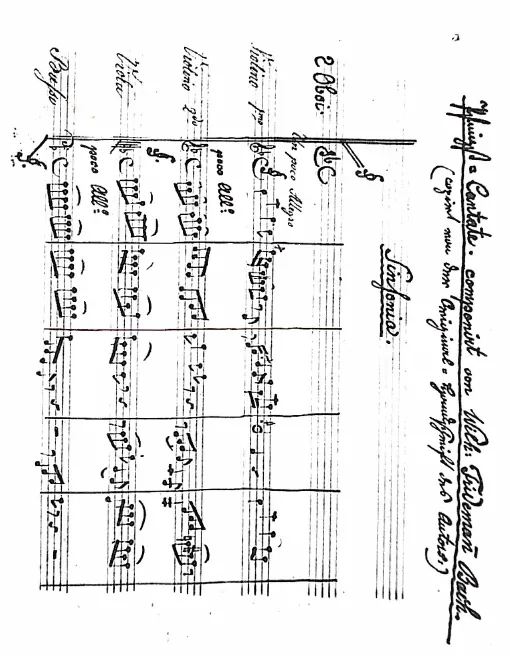 Pfingst = Cantate. componirt von Wilh: Friedeman̄ Bach.
(copirt von der Original = Handschrift des Autors.)
Sinfonia.
2 Oboi.
Un poco Allegro
Violino 1mo
poco All:o
Violino 2do
Viola
poco All:o
Basso